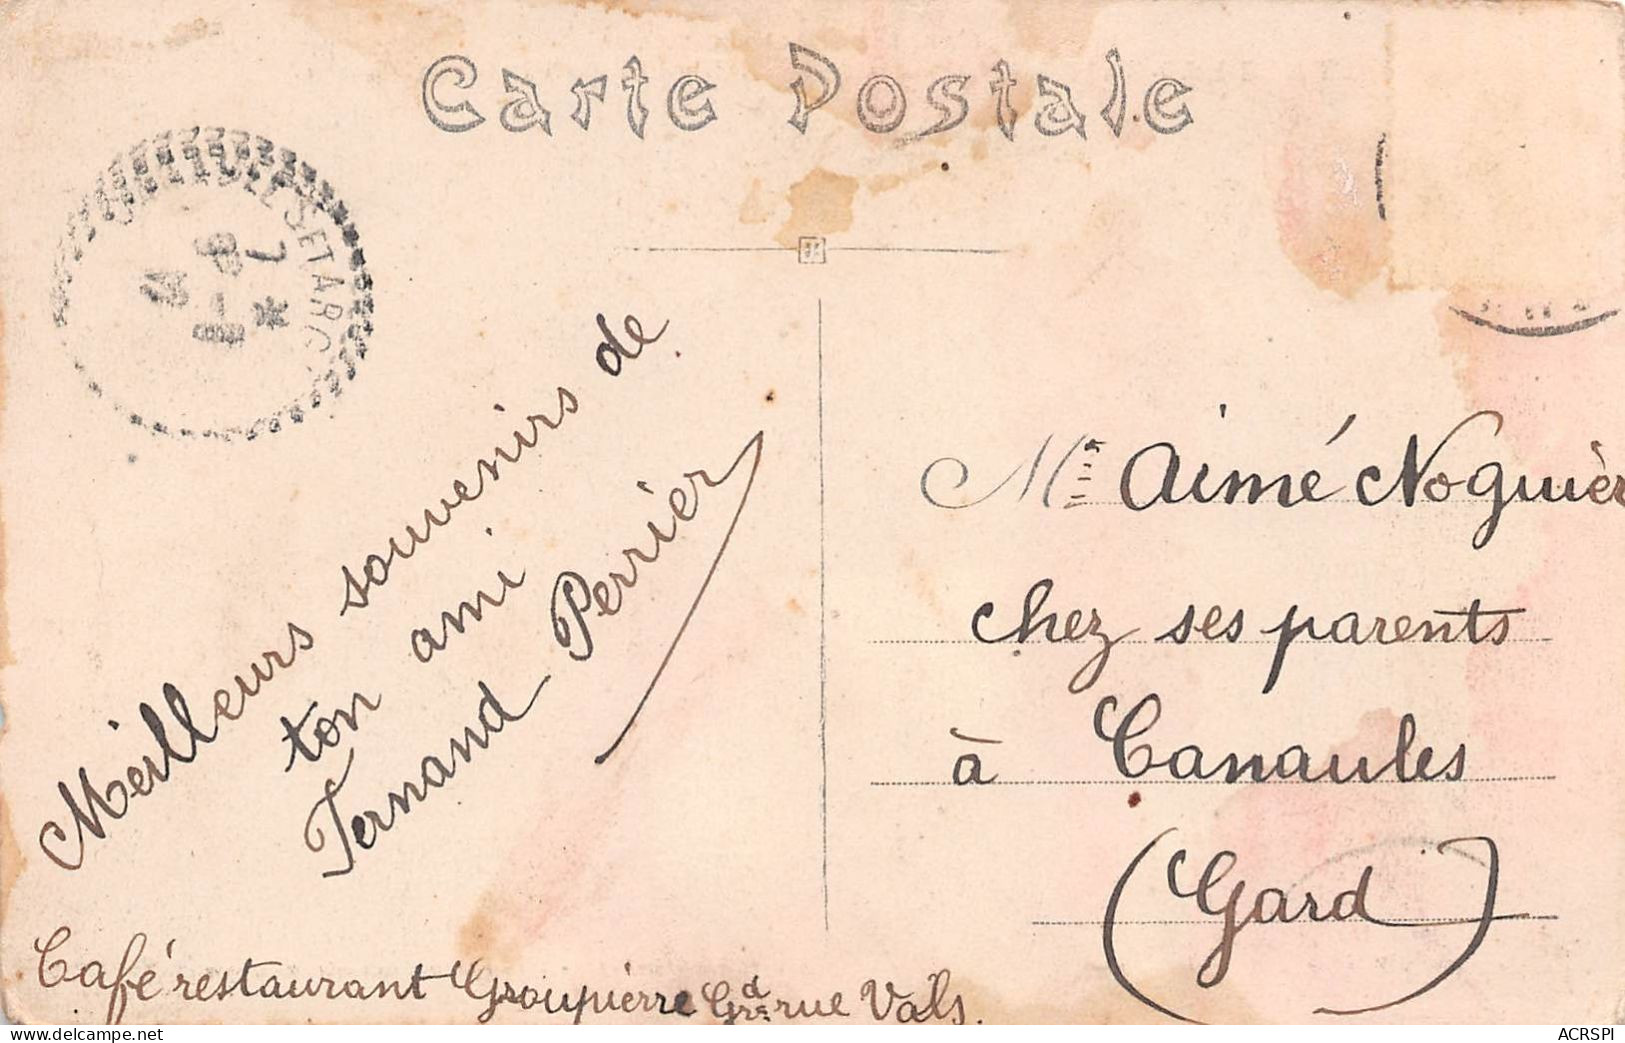 Carte Postale
ET ARG
4
8
7
*
Meilleurs souvenirs de
ton ami
Fernand Perrier
Café restaurant Groupierre Gde rue Vals.
Mr Aimé Noguier
chez ses parents
à Canaules
(Gard)
ACRSPI